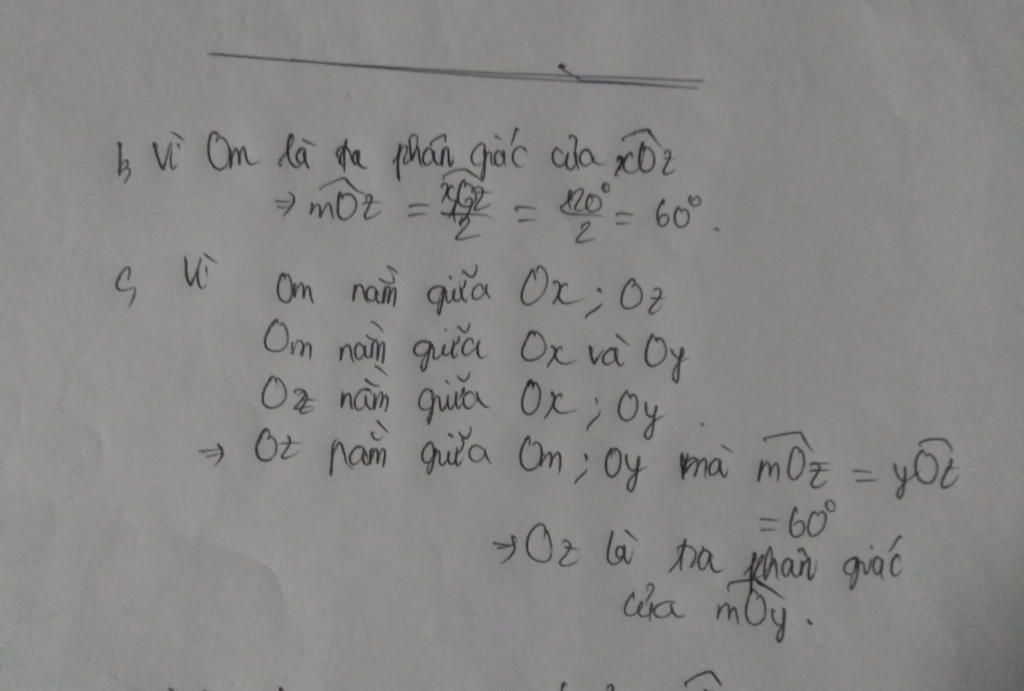 b, Vì Om là tia phân giác của xOz
⇒ mOz = xOz/2 = 120°/2 = 60°.
c, Vì Om nằm giữa Ox ; Oz
Om nằm giữa Ox và Oy
Oz nằm giữa Ox ; Oy.
⇒ Oz nằm giữa Om ; Oy mà mOz = yOz
= 60°
⇒ Oz là tia phân giác
của mOy.